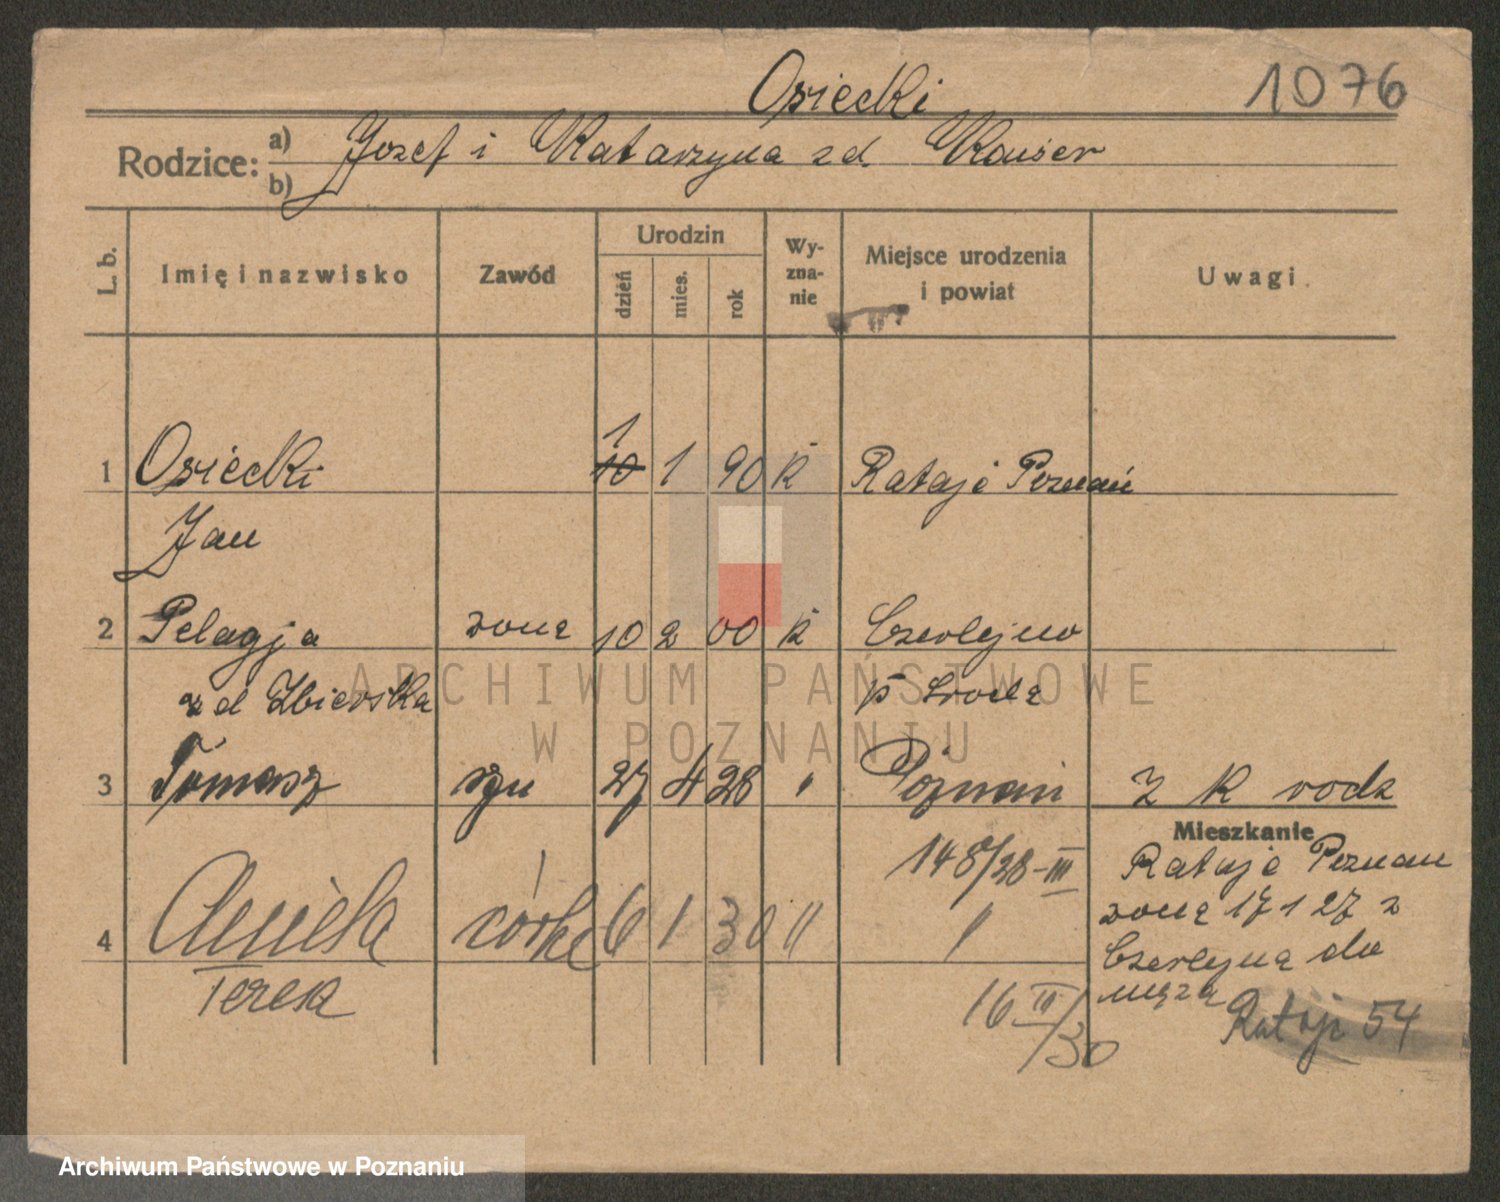 Osiecki 1076
Rodzice: a) Józef i Katarzyna z d. Kaiser
b)
L. b. Imię i nazwisko Zawód Urodzin dzień mies. rok Wyznanie Miejsce urodzenia i powiat Uwagi
1
1 Osiecki 10 1 90 k Rataje Poznań
Jan
2 Pelagja żona 10 2 00 k Czerlejno
z d Zbierska p Środa
3 Tomasz syn 27 4 28 " Poznań z k rodz
Mieszkanie
148/28-III Rataje Poznań
żona 17 1 27 z
4 Aniela córka 6 1 30 " "
Czerlejna do
Teresa męża
16 III/30 Rataje 54
ARCHIWUM PAŃSTWOWE
W POZNANIU
Archiwum Państwowe w Poznaniu